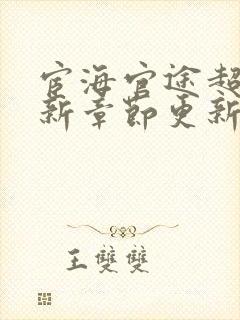 宦海官途超
新章節更新
王雙雙